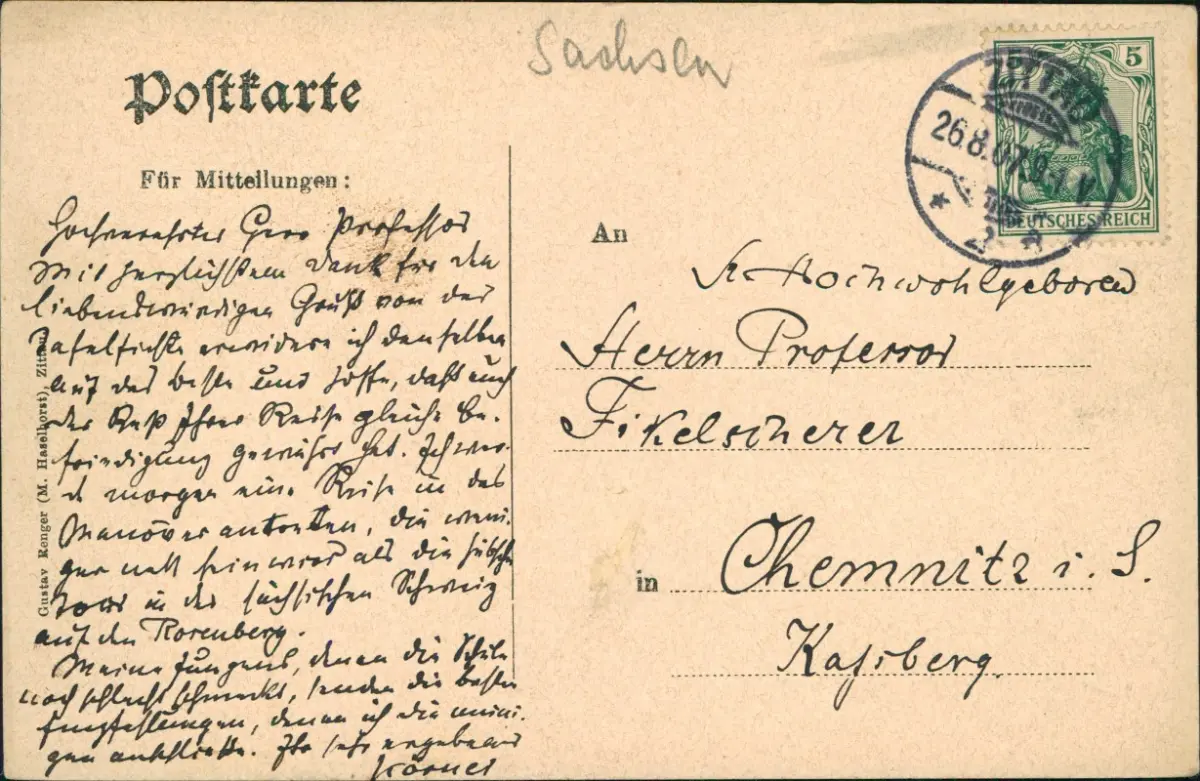 Sachsen
Postkarte
5
DEUTSCHES REICH
ZITTAU
26.8.07.9-1 V.
* 2 a
Für Mitteilungen:
Hochverehrter Herr Professor
Mit herzlichstem Dank für den
liebenswürdigen Gruß von der
Tafelfichte erwidere ich denselben
auf das beste und hoffe, daß auch
der Rest Ihrer Reise gleiche Be-
friedigung gewährt hat. Ich wer-
de morgen eine Reise in das
Manöver antreten, die weni-
ger nett sein wird als die hübsche
Tour in der sächsischen Schweiz
auf den Rosenberg.
Meine Jungens, denen die Schule
noch schlecht schmeckt, senden die besten
Empfehlungen, denen ich die meini-
gen anschließe. Ihr sehr ergebener
Körner
Gustav Renger (M. Haselhorst), Zittau.
An
Sr. Hochwohlgeboren
Herrn Professor
Fikelscherer
in Chemnitz i. S.
Kaßberg.